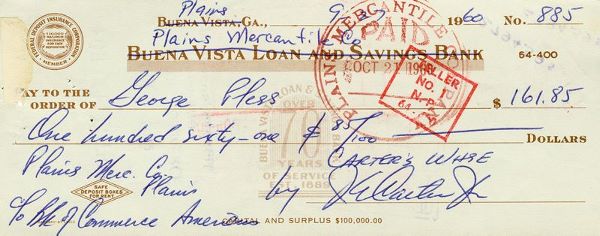 Plains
BUENA VISTA, GA., 1960 No. 885
Plains Mercantile Co
BUENA VISTA LOAN AND SAVINGS BANK 64-400
FEDERAL DEPOSIT INSURANCE CORPORATION
MEMBER
PLAINS MERCANTILE BANK
PAID
OCT 21
TELLER
NO. 1
N-P
64
PAY TO THE
ORDER OF George Pless $ 161.85
One hundred sixty-one & 85/100 DOLLARS
BUENA VISTA LOAN &
OVER
70
YEARS
OF SERVICE
EST. 1889
Plains Merc. Co. CARTER'S WHSE
SAFE
DEPOSIT BOXES
FOR RENT
Plains by J E Carter Jr
To Bk of Commerce Americus
CAPITAL AND SURPLUS $100,000.00